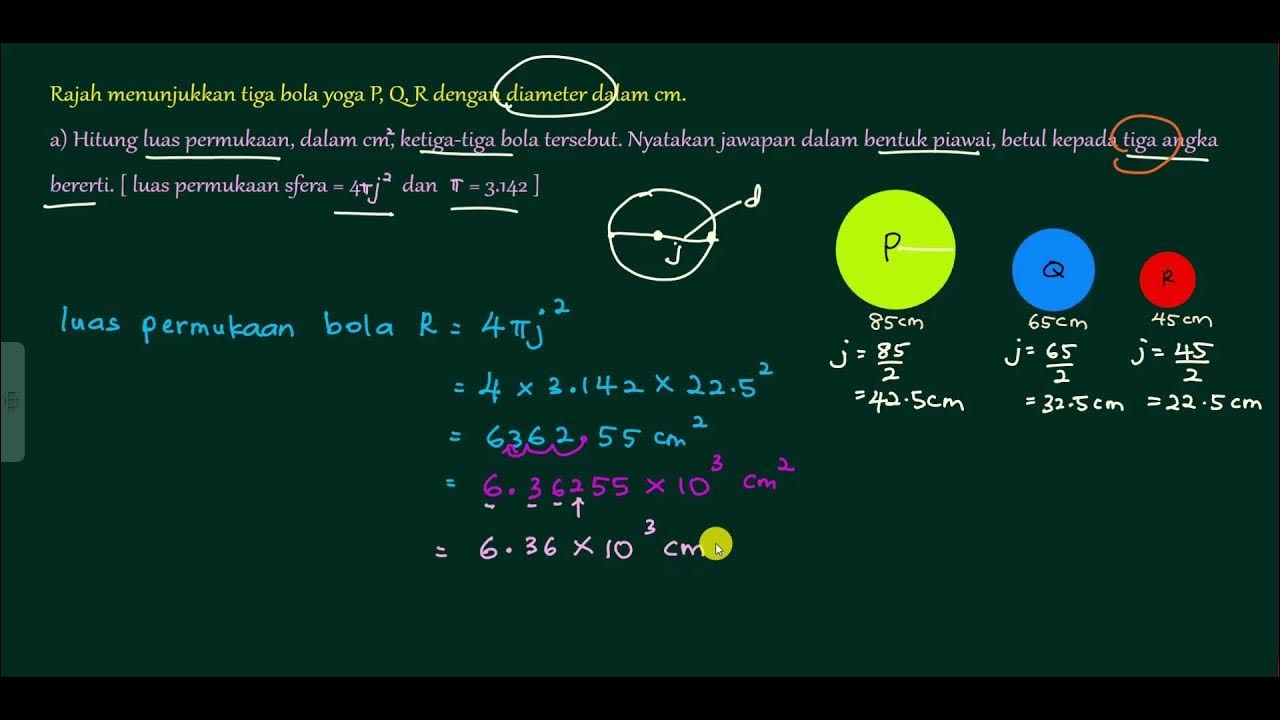 Rajah menunjukkan tiga bola yoga P, Q, R dengan diameter dalam cm.
a) Hitung luas permukaan, dalam cm², ketiga-tiga bola tersebut. Nyatakan jawapan dalam bentuk piawai, betul kepada tiga angka
bererti. [ luas permukaan sfera = 4πj² dan π = 3.142 ]
d
j
P
Q
R
85cm
65cm
45cm
j = 85/2
= 42.5cm
j = 65/2
= 32.5cm
j = 45/2
= 22.5cm
luas permukaan bola R = 4πj²
= 4 × 3.142 × 22.5²
= 6362.55 cm²
= 6.36255 × 10³ cm²
= 6.36 × 10³ cm